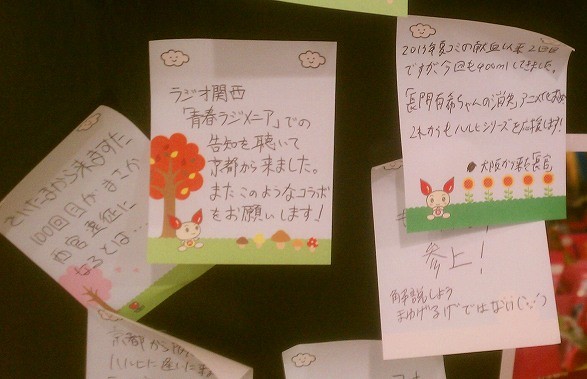 ラジオ関西
「青春ラジメニア」での
告知を聴いて
京都から来ました。
またこのようなコラボ
をお願いします!
2013年夏コミの献血以来2回目
ですが、今回も400mlしてきました。
長門有希ちゃんの消失アニメ化
これからもハルヒシリーズを応援します!
大阪から
さいたまから来ました
100回目がまさか
西宮遠征に
なるとは…
参上!
解説しよう
まゆげではない
京都から
ハルヒに逢いに来